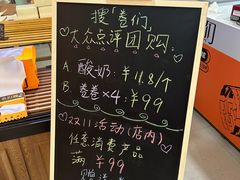 搜卷们,
大众点评团购:
A. 酸奶: ¥11.8/个
B. 卷卷×4: ¥99
2211活动(店内)
任意消费产品
满 ¥99